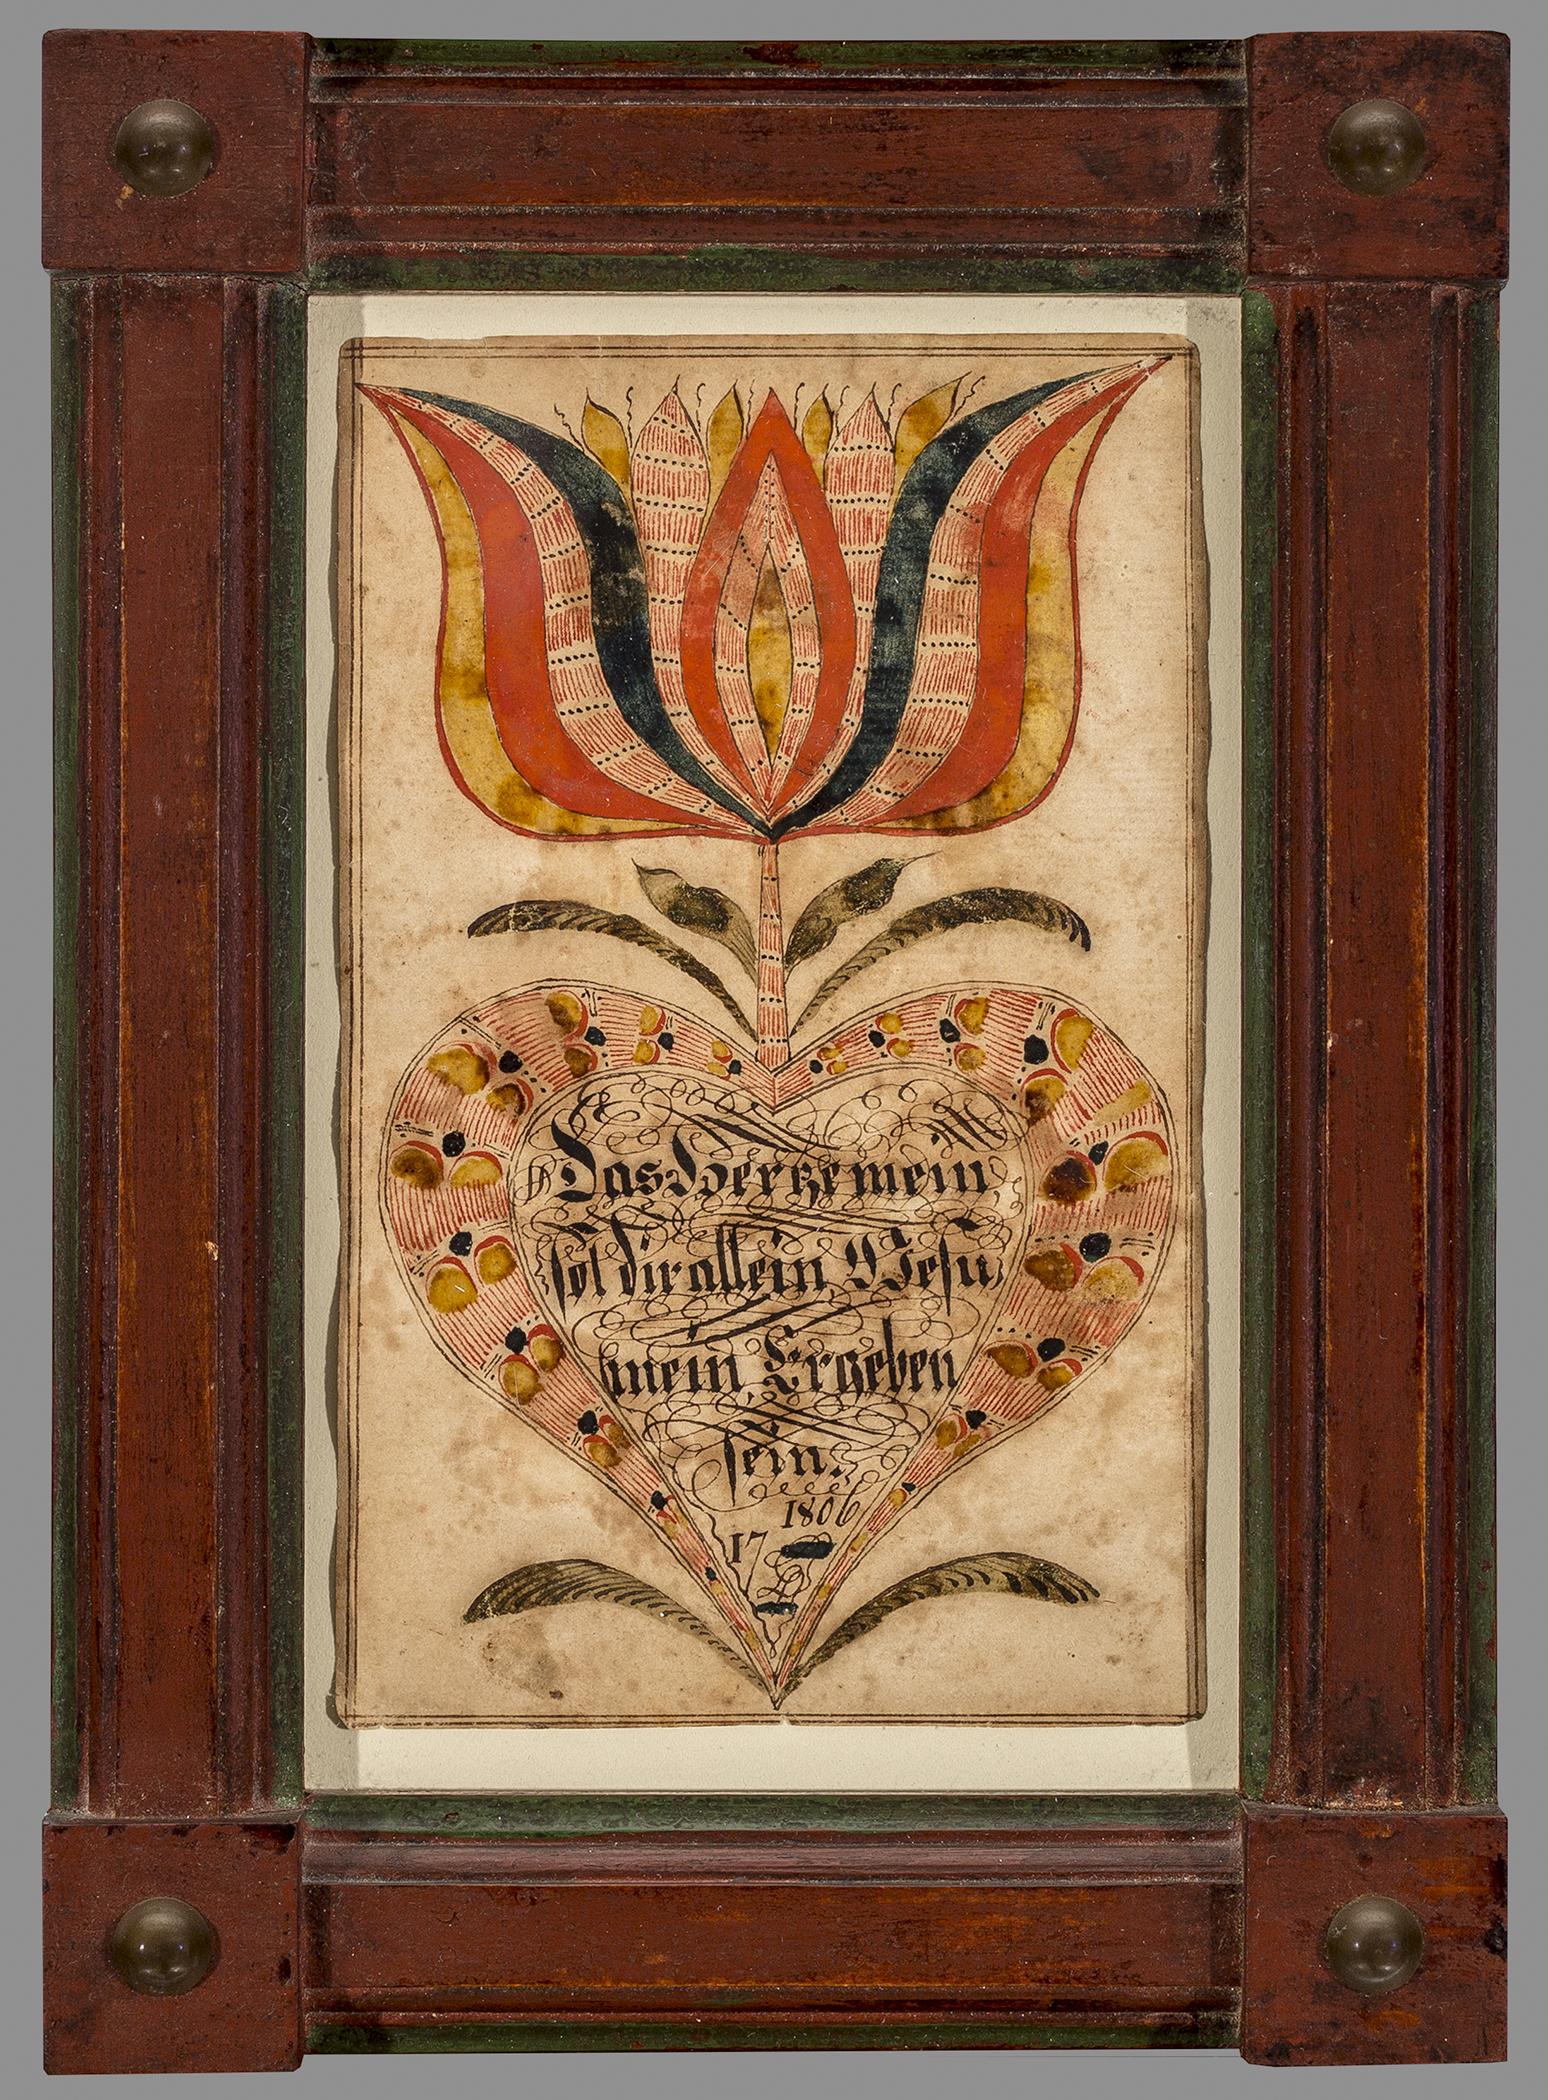 Das Hertze mein,
sol dir allein, Jesu
mein, Ergeben
sein.
1806
17